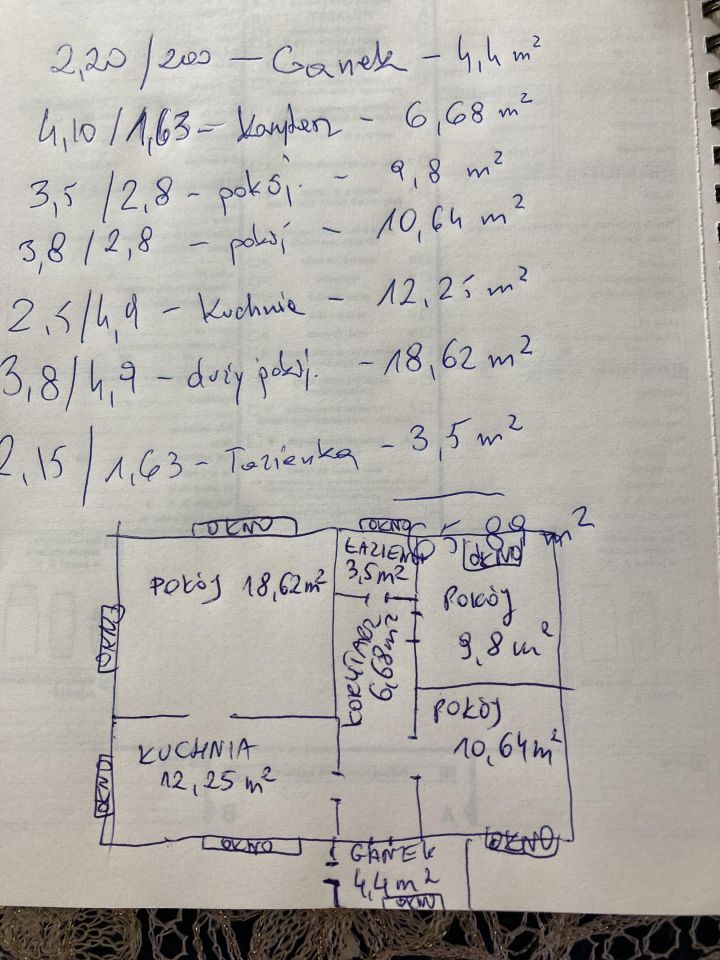 2,20/200 – Ganek – 4,4 m²
4,10/1,63 – Korytarz – 6,68 m²
3,5/2,8 – pokój. – 9,8 m²
3,8/2,8 – pokój – 10,64 m²
2,5/4,9 – Kuchnia – 12,25 m²
3,8/4,9 – duży pokój. – 18,62 m²
2,15/1,63 – Łazienka – 3,5 m²
65,89 m²
OKNO
OKNO
OKNO
POKÓJ 18,62m²
ŁAZIEN
3,5m²
POKÓJ
9,8 m²
OKNO
KORYTARZ
6,68m²
POKÓJ
10,64m²
KUCHNIA
12,25 m²
OKNO
OKNO
OKNO
GANEK
4,4m²
OKNO